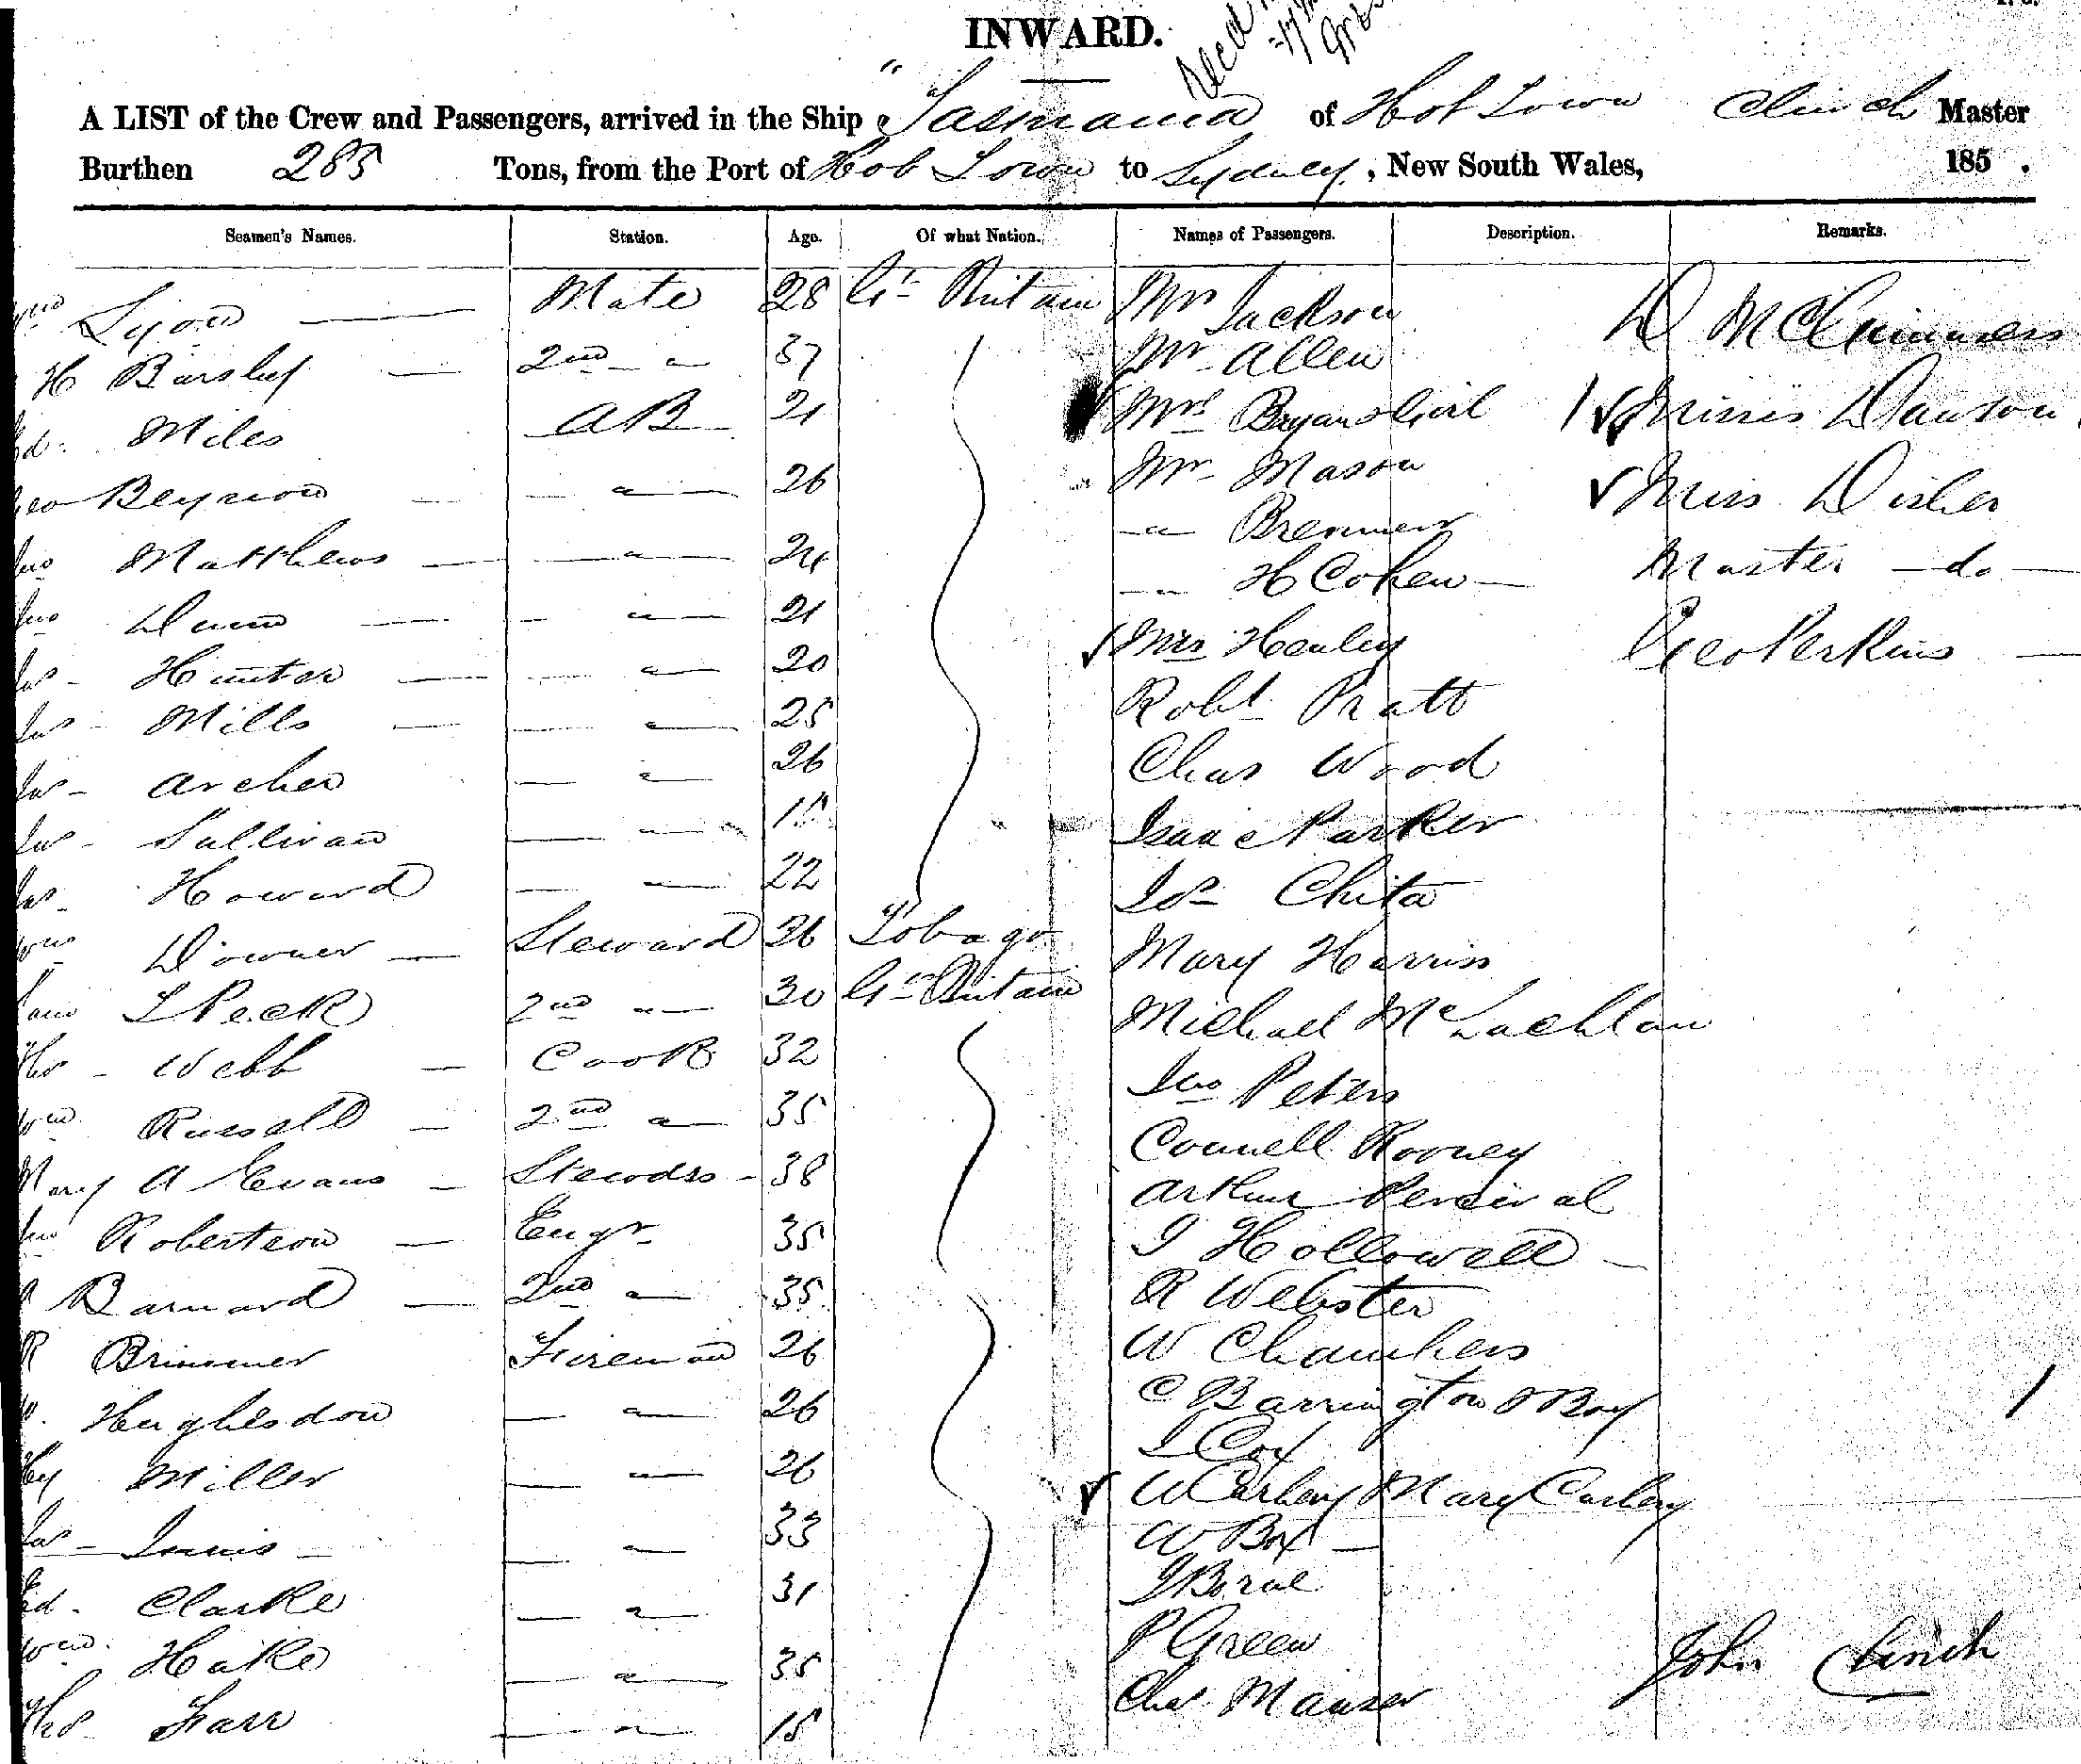 INWARD.
A LIST of the Crew and Passengers, arrived in the Ship "Tasmania of Hob Town Clinch Master
Burthen 285 Tons, from the Port of Hob Town to Sydney, New South Wales, 185 .
Seamen's Names. Station. Age. Of what Nation. Names of Passengers. Description. Remarks.
Wm Lyon — Mate 28 Gt Britain Mr Jackson
H Barsley — 2nd — " — 37 Mr Allen
Ed. Miles AB 21 Mrs Bryan & Girl 1 Misses Dawson
Geo Beynon — " — 26 Mr Mason Miss Disher
Jno Matthews — " — 24 — " — Bremner Master — do —
Jno Dunn — " — 21 — " — H Cohen — Geo Perkins —
Jas Hunter — " — 20 Mrs Henley
Jas Mills — " — 25 Robt Pratt
Jas Archer — " — 26 Chas Wood
Jas Sullivan — " — Isaac Parker
Jas Howard — " — 22 Jos Chita
Wm Downer — Steward 36 Tobago Mary Harriss
L Peck 2nd — " — 30 Gt Britain Michael McLachlan
Thos Webb — Cook 32 Jno Peters
Wm Russell — 2nd — " — 35 Connell Rooney
Mary A Evans — Stewdss — 38 Arthur Percival
Jno Robertson — Engr 35 J Hollowell —
Barnard — 2nd — " — 35 R Webster
R Brimmer Fireman 26 W Chambers
Hughesdon — " — 26 C Barrington & Boy 1
Hy Miller — " — 26 J Cox
Jas Innis — — " — 33 W Carley Mary Carley
Ed. Clarke — " — 31 W Box —
Wm. Hake — " — 35 P Green
Thos Farr — " — 15 Chas Manser
John Clinch